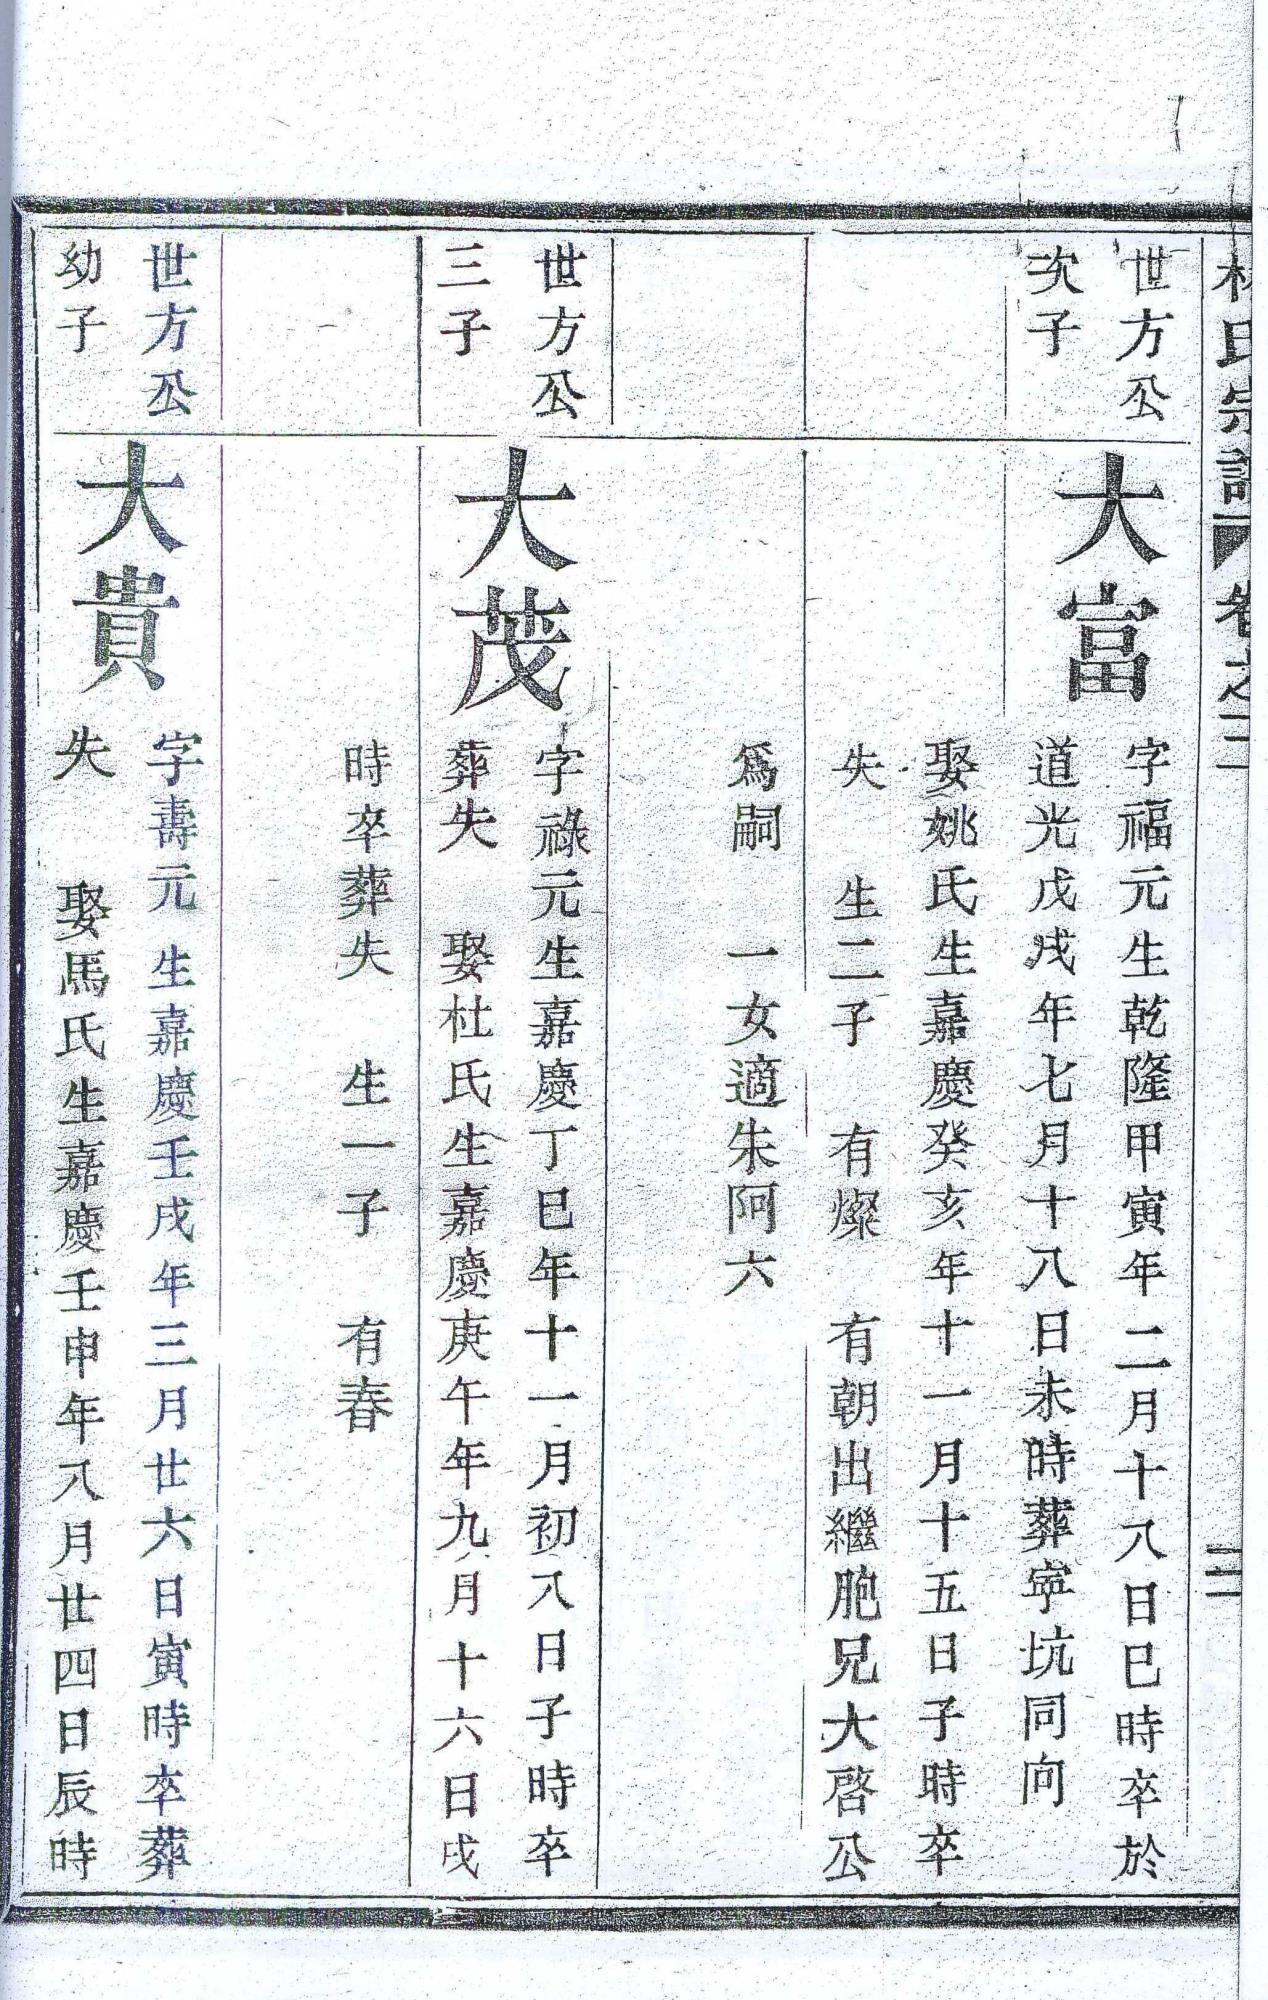 氏宗譜 卷之二
三
世方公
次子
大富
字福元生乾隆甲寅年二月十八日巳時卒於
道光戊戌年七月十八日未時葬寜坑同向
娶姚氏生嘉慶癸亥年十一月十五日子時卒
失 生二子 有燦 有朝出繼胞兄大啓公
爲嗣 一女適朱阿六
世方公
三子
大茂
字祿元生嘉慶丁巳年十一月初八日子時卒
葬失 娶杜氏生嘉慶庚午年九月十六日戌
時卒葬失 生一子 有春
世方公
幼子
大貴
字壽元生嘉慶壬戌年三月廿六日寅時卒葬
失 娶馬氏生嘉慶壬申年八月廿四日辰時